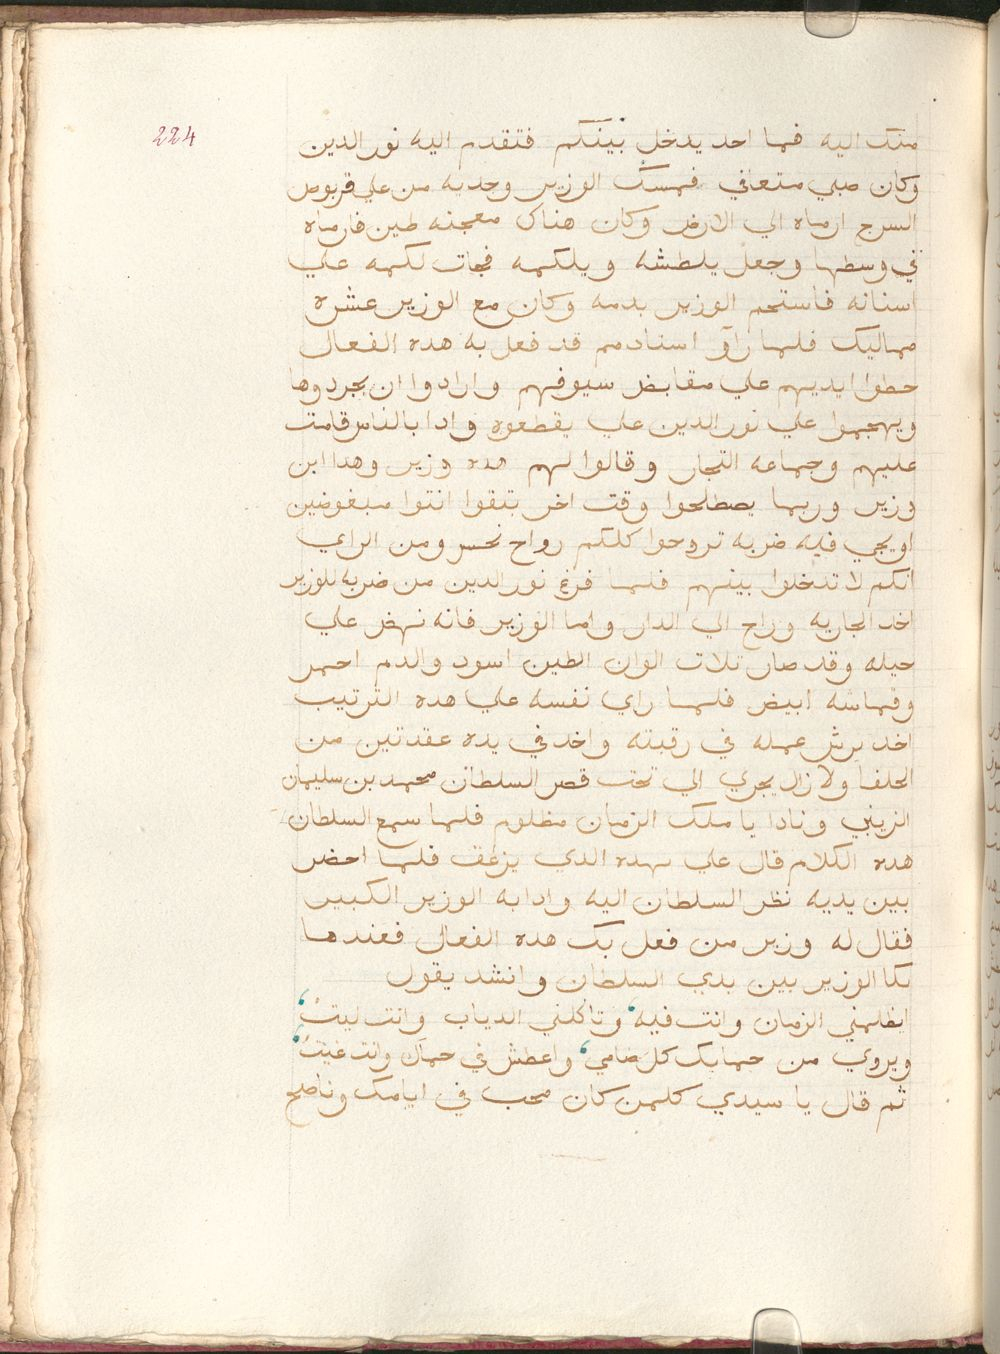 224
منك اليه فما احد يدخل بينكم فتقدم اليه نور الدين
وكان صبي متعافي فمسك الوزير وجدبه من علي قربوص
السرج ارماه الي الارض وكان هناك معجنه طين فارماه
في وسطها وجعل يلطشه ويلكمه فجات لكمه علي
اسنانه فاستحم الوزير بدمه وكان مع الوزير عشره
مماليك فلما راو استادهم قد فعل به هده الفعال
حطوا ايديهم علي مقابض سيوفهم وارادوا ان يجردوها
ويهجموا علي نور الدين علي يقطعوه وادا بالناس قامت
عليهم وجماعه التجار وقالوا لهم هده وزير وهدا ابن
وزير وربما يصطلحوا وقت اخر تبقوا انتوا مبغوضين
او يجي فيه ضربه تروحوا كلكم رواح نحس ومن الراي
انكم لا تدخلوا بينهم فلما فرغ نور الدين من ضربه للوزير
اخد الجاريه وراح الي الدار واما الوزير فانه نهض علي
حيله وقد صار تلات الوان الطين اسود والدم احمر
وقماشه ابيض فلما راي نفسه علي هده الترتيب
اخد برش عمله في رقبته واخد في يده عقدتين من
الحلفا ولا زال يجري الي تحت قصر السلطان محمد بن سليمان
الزيني ونادا يا ملك الزمان مظلوم فلما سمع السلطان
هده الكلام قال علي بهده الدي يزعق فلما احضر
بين يديه نظر السلطان اليه وادا به الوزير الكبير
فقال له وزير من فعل بك هده الفعال فعندها
بكا الوزير بين يدي السلطان وانشد يقول
ايظلمني الزمان وانت فيه، وتاكلني الدياب وانت ليت،
ويروي من حمايك كل ضامي، واعطش في حماك وانت غيت،
ثم قال يا سيدي كلمن كان محب في ايامك وناصح